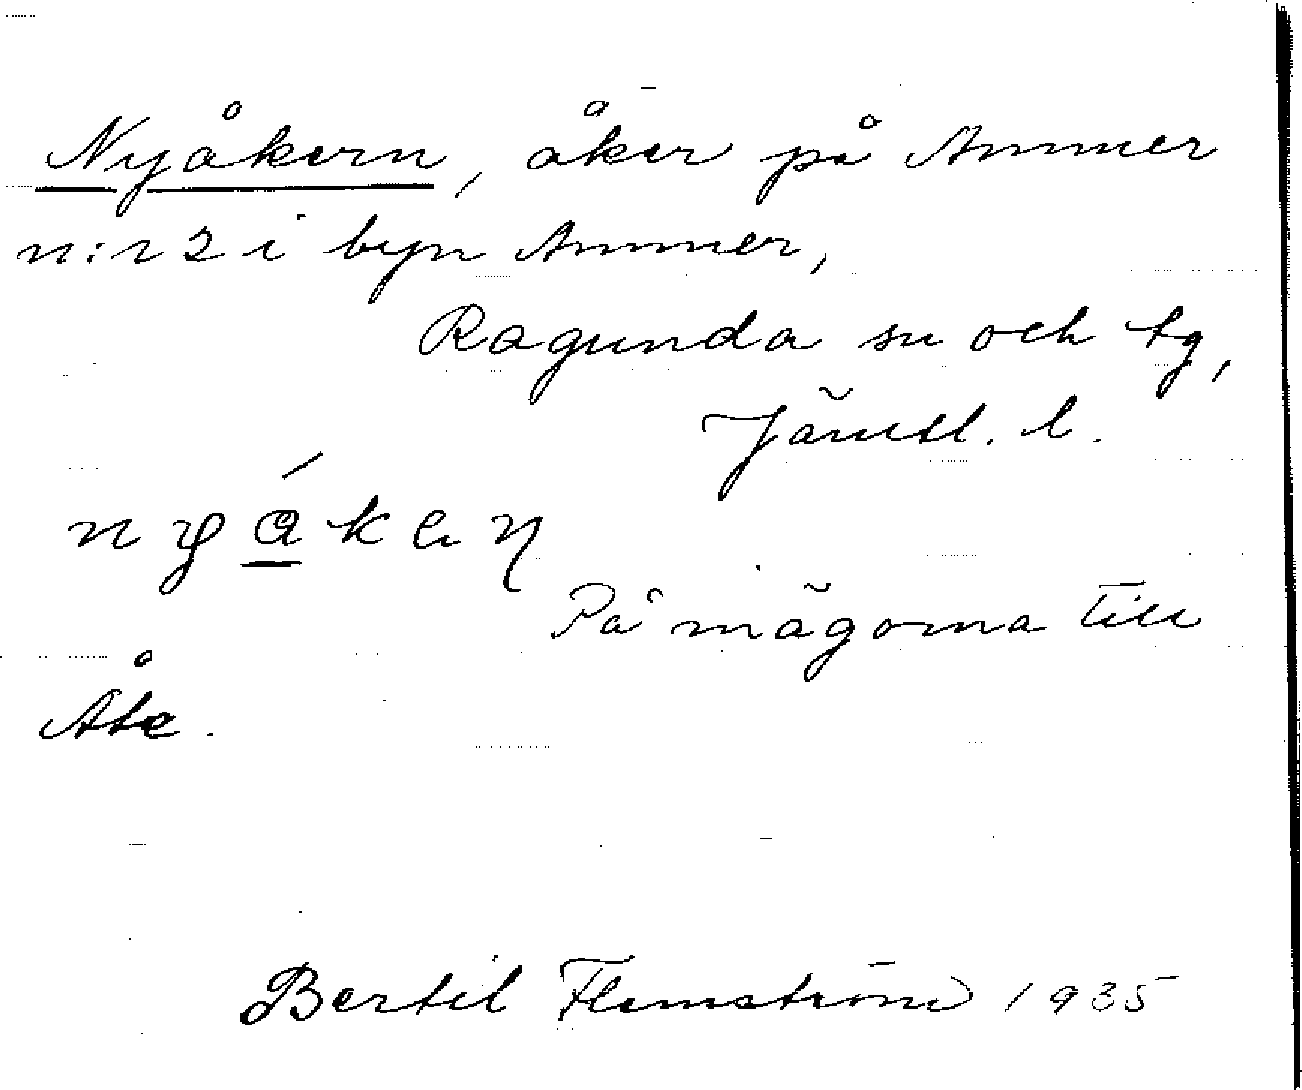 Nyåkern, åker på Ammer
n:r 2 i byn Ammer,
Ragunda sn och tg,
Jämtl. l.
På mägorna till
Åte.
Bertil Flemström 1935